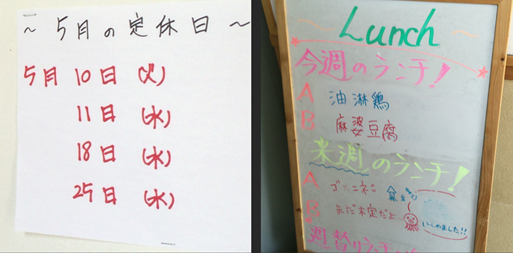 ～ 5月の定休日 ～
5月 10日 (火)
11日 (水)
18日 (水)
25日 (水)
Lunch
今週のランチ!
A 油淋鶏
B 麻婆豆腐
来週のランチ!
A
B まだ未定だよ
いしゃました!!
週替りランチ